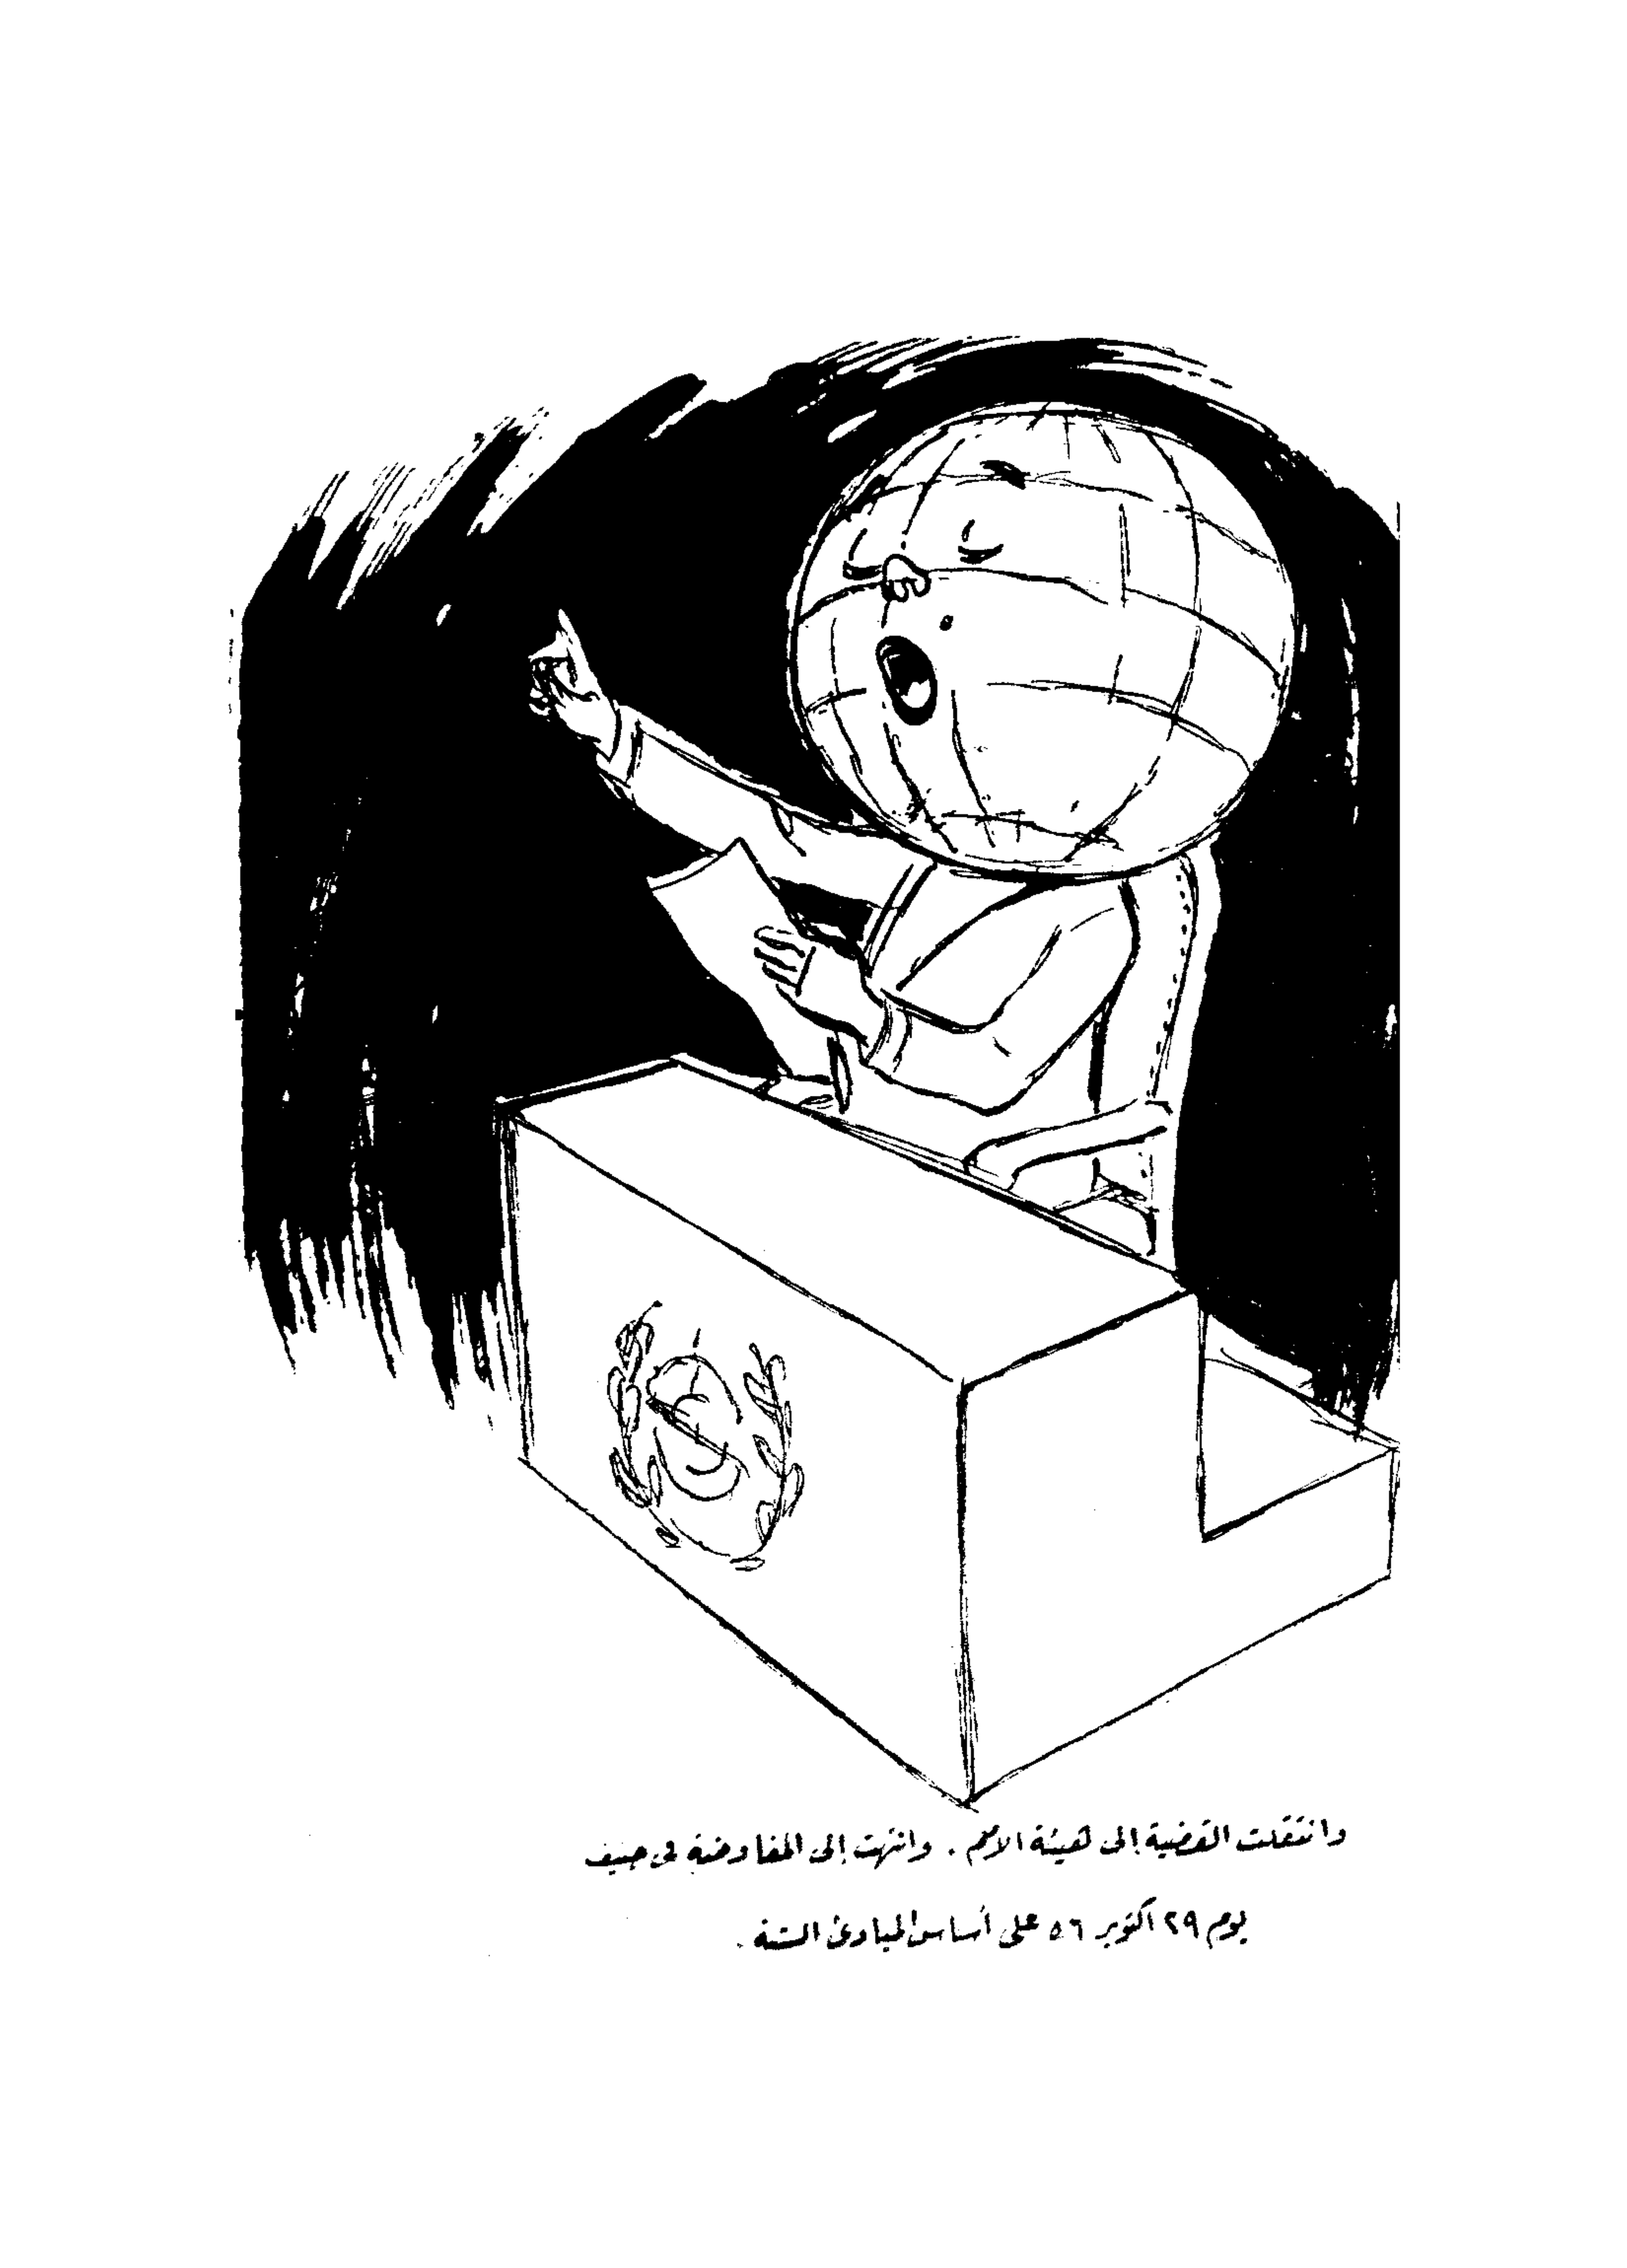 وانتقلت القضية إلى هيئة الأمم . وانتهت إلى المفاوضة فى جنيف
يوم ٢٩ أكتوبر ٥٦ على أساس المبادئ الستة .